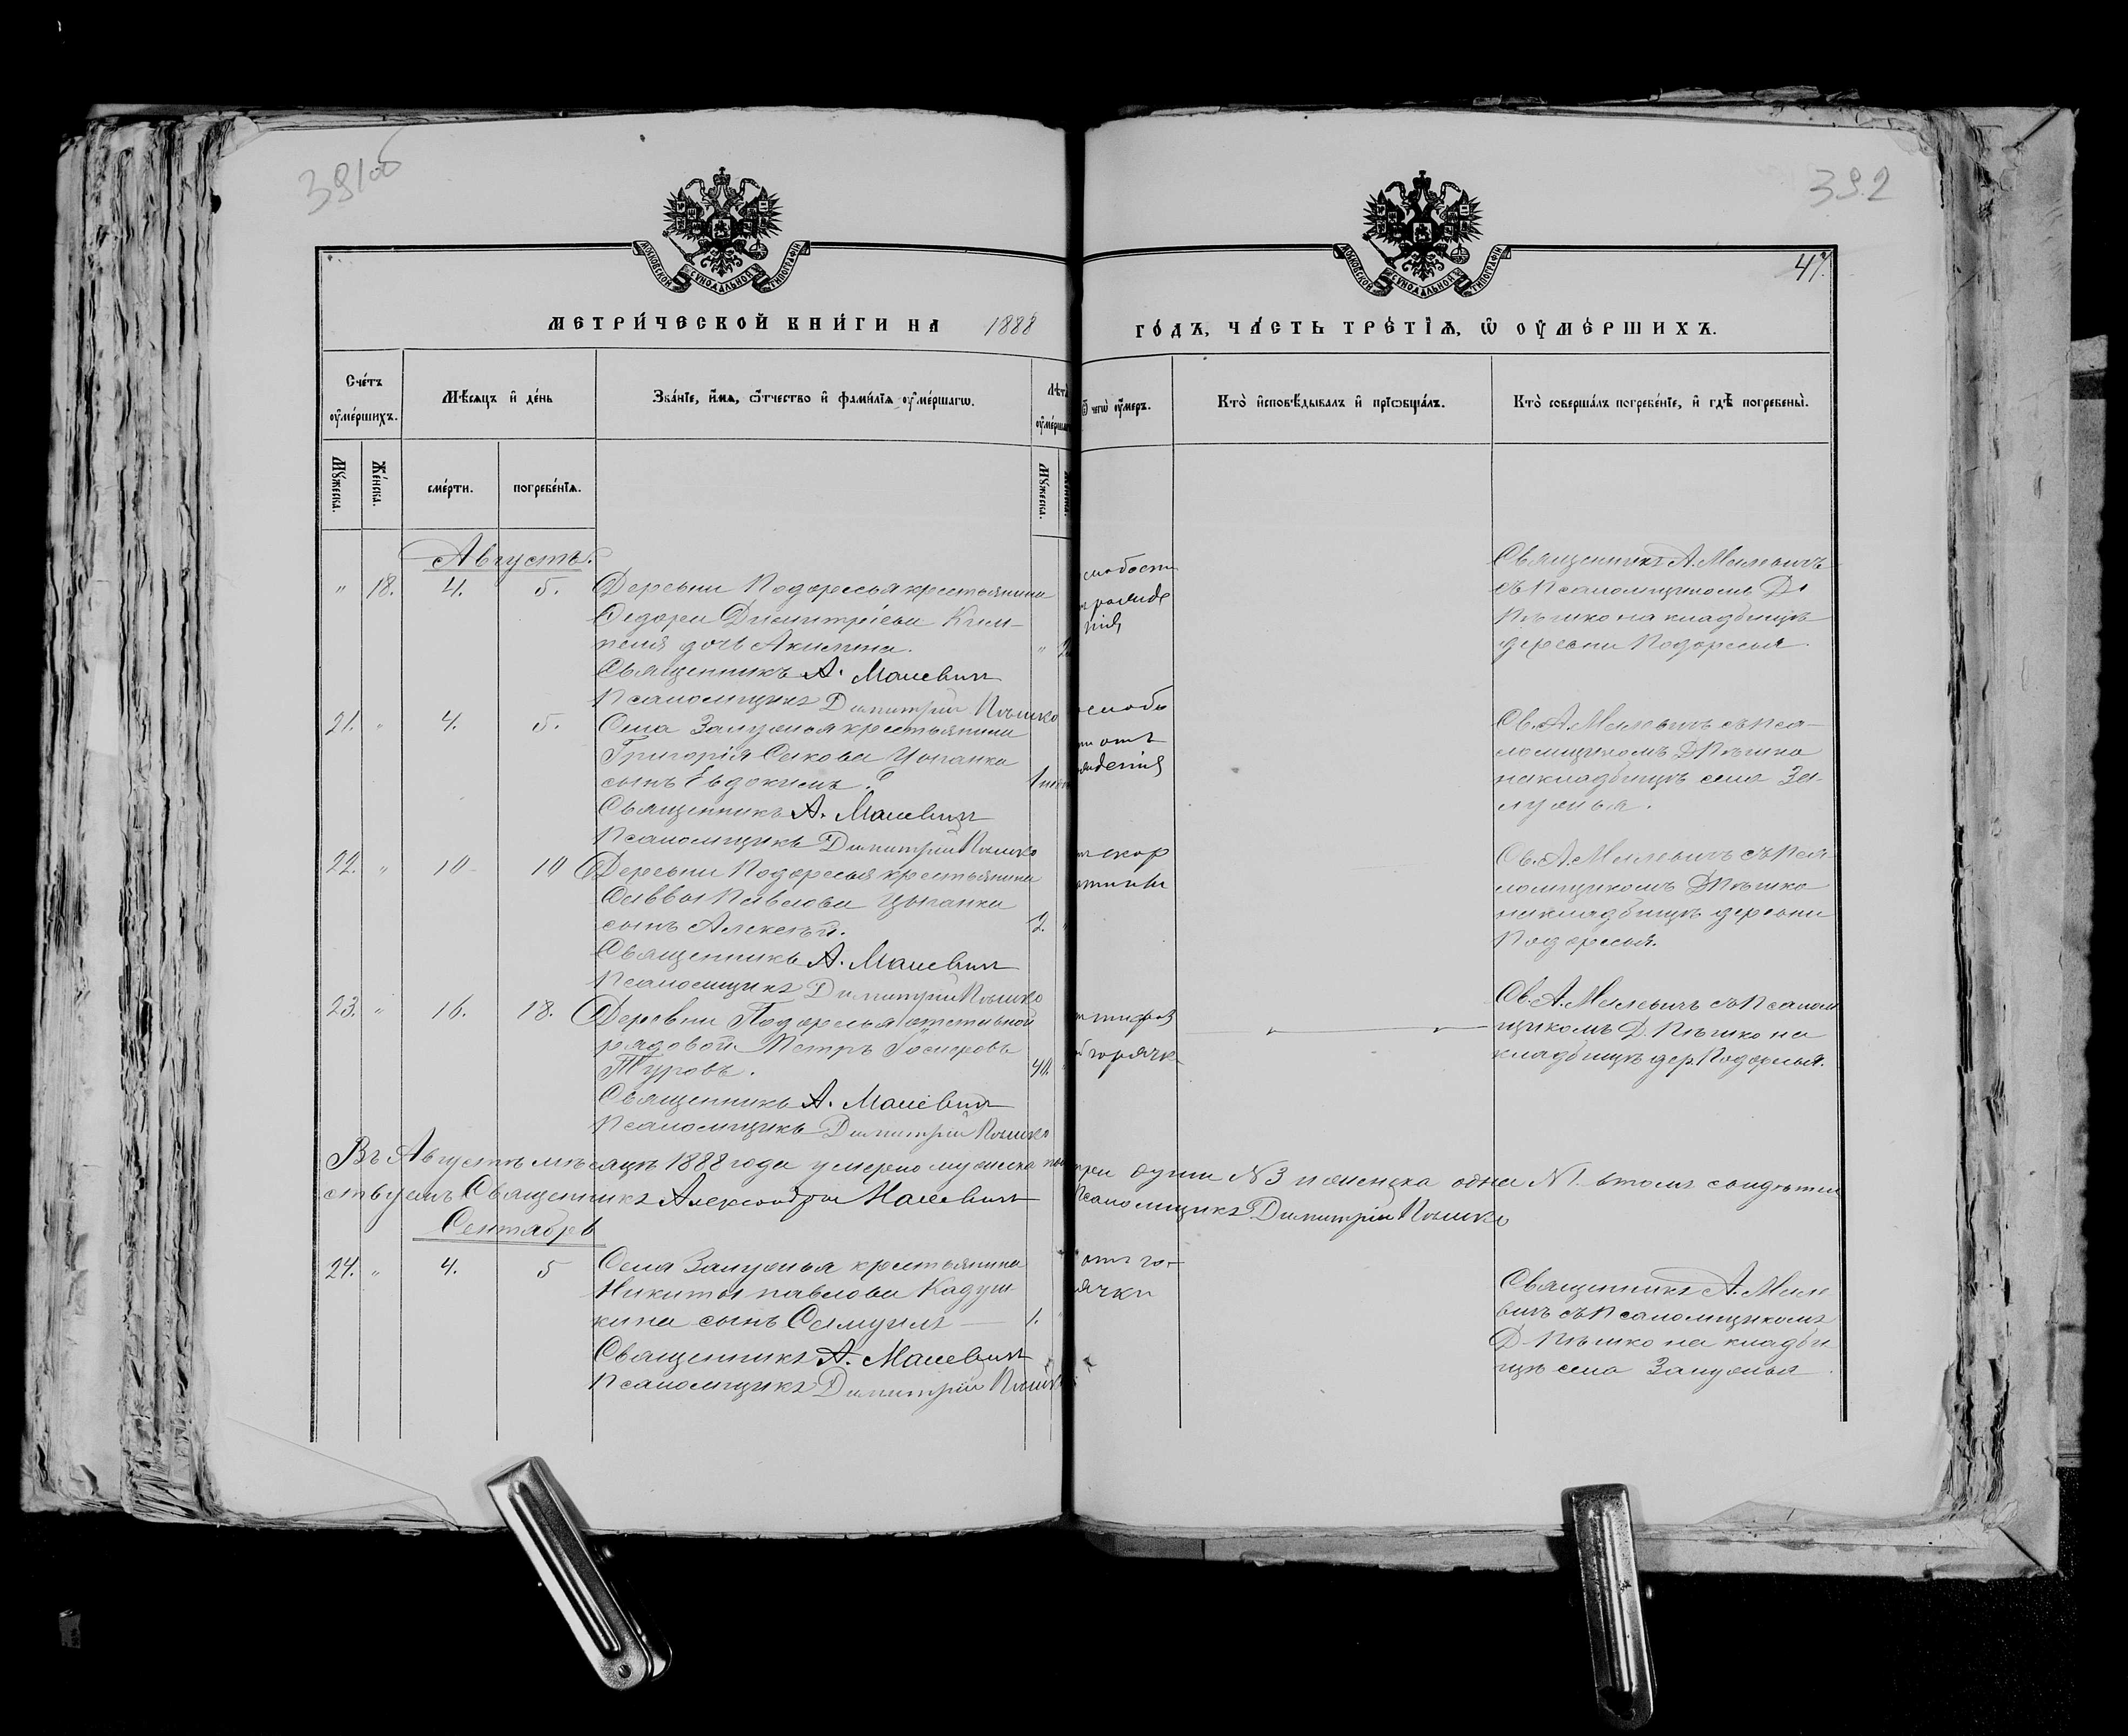 391об
392
МОСКОВСКОЙ СУНОДАЛЬНОЙ ТИПОГРАФІИ
МОСКОВСКОЙ СУНОДАЛЬНОЙ ТИПОГРАФІИ
41.
МЕТРИ́ЧЕСКОЙ КНИ́ГИ НА 1888 ГО́ДЪ, ЧА́СТЬ ТРЕ́ТІѦ, Ѡ ОУ҆МЕ́РШИХЪ.
Сче́тъ оу҆ме́ршихъ.
Мѣ́сяцъ и҆ де́нь
Зва́нїе, и҆́мѧ, ѻ҆́тчество и҆ фами́лїѧ оу҆ме́ршагѡ.
Лѣта̀ оу҆ме́рша
Ѿ чегѡ̀ оу҆́меръ.
Кто̀ и҆сповѣ́дывалъ и҆ прїѡбща́лъ.
Кто̀ соверша́лъ погребе́нїе, и҆ гдѣ̀ погребены̀.
Мꙋ́жеска.
Же́нска.
сме́рти.
погребе́нїѧ.
Мꙋ́жеска.
Августъ.
" 18. 4. 5. Деревни Подоресья крестьянина
Ѳедора Димитріева Ким-
пеля дочь Акилина. "
Священникъ А. Малевич
Псаломщикъ Димитрій Пѣшко
слабости
рожде
нія
Священникъ А. Малевичъ
съ Псаломщикомъ Д.
Пѣшко на кладбищѣ
деревни Подоресья.
21. " 4. 5. Села Залужья крестьянина
Григорія Цыганка
сынъ Евдокимъ. 1
Священникъ А. Малевич
Псаломщикъ Димитрій Пѣшко
слабо
отъ
жденія
Св. А. Малевичъ съ Пса-
ломщикомъ Д. Пѣшко
на кладбищѣ села За-
лужья.
22. " 10 10 Деревни Подоресья крестьянина
Саввы Павлова Цыганка
сынъ Алексѣй. 2.
Священникъ А. Малевич
Псаломщикъ Димитрій Пѣшко
скар
латины
Св. А. Малевичъ съ Пса-
ломщикомъ Д. Пѣшко
на кладбищѣ деревни
Подоресья.
23. " 16. 18. Деревни Подоресья отставной
рядовой Петръ
Туровъ. 40.
Священникъ А. Малевич
Псаломщикъ Димитрій Пѣшко
горячк
Св. А. Малевичъ съ Псалом
щикомъ Д. Пѣшко на
кладбищѣ дер. Подоресья.
Въ Августѣ мѣсяцѣ 1888 года умерло мужска три души N 3 и женска одна N 1. въ томъ свидѣтель
ствуемъ Священникъ Александръ Малевич Псаломщикъ Димитрій Пѣшко
Сентябрь
24. " 4. 5 Села Залужья крестьянина
Никиты Павлова Кадуш-
кина сынъ Самуилъ 1.
Священникъ А. Малевич
Псаломщикъ Димитрій Пѣшко
отъ го-
рячки
Священникъ А. Мале
вичъ съ Псаломщикомъ
Д. Пѣшко на кладби
щѣ села Залужья